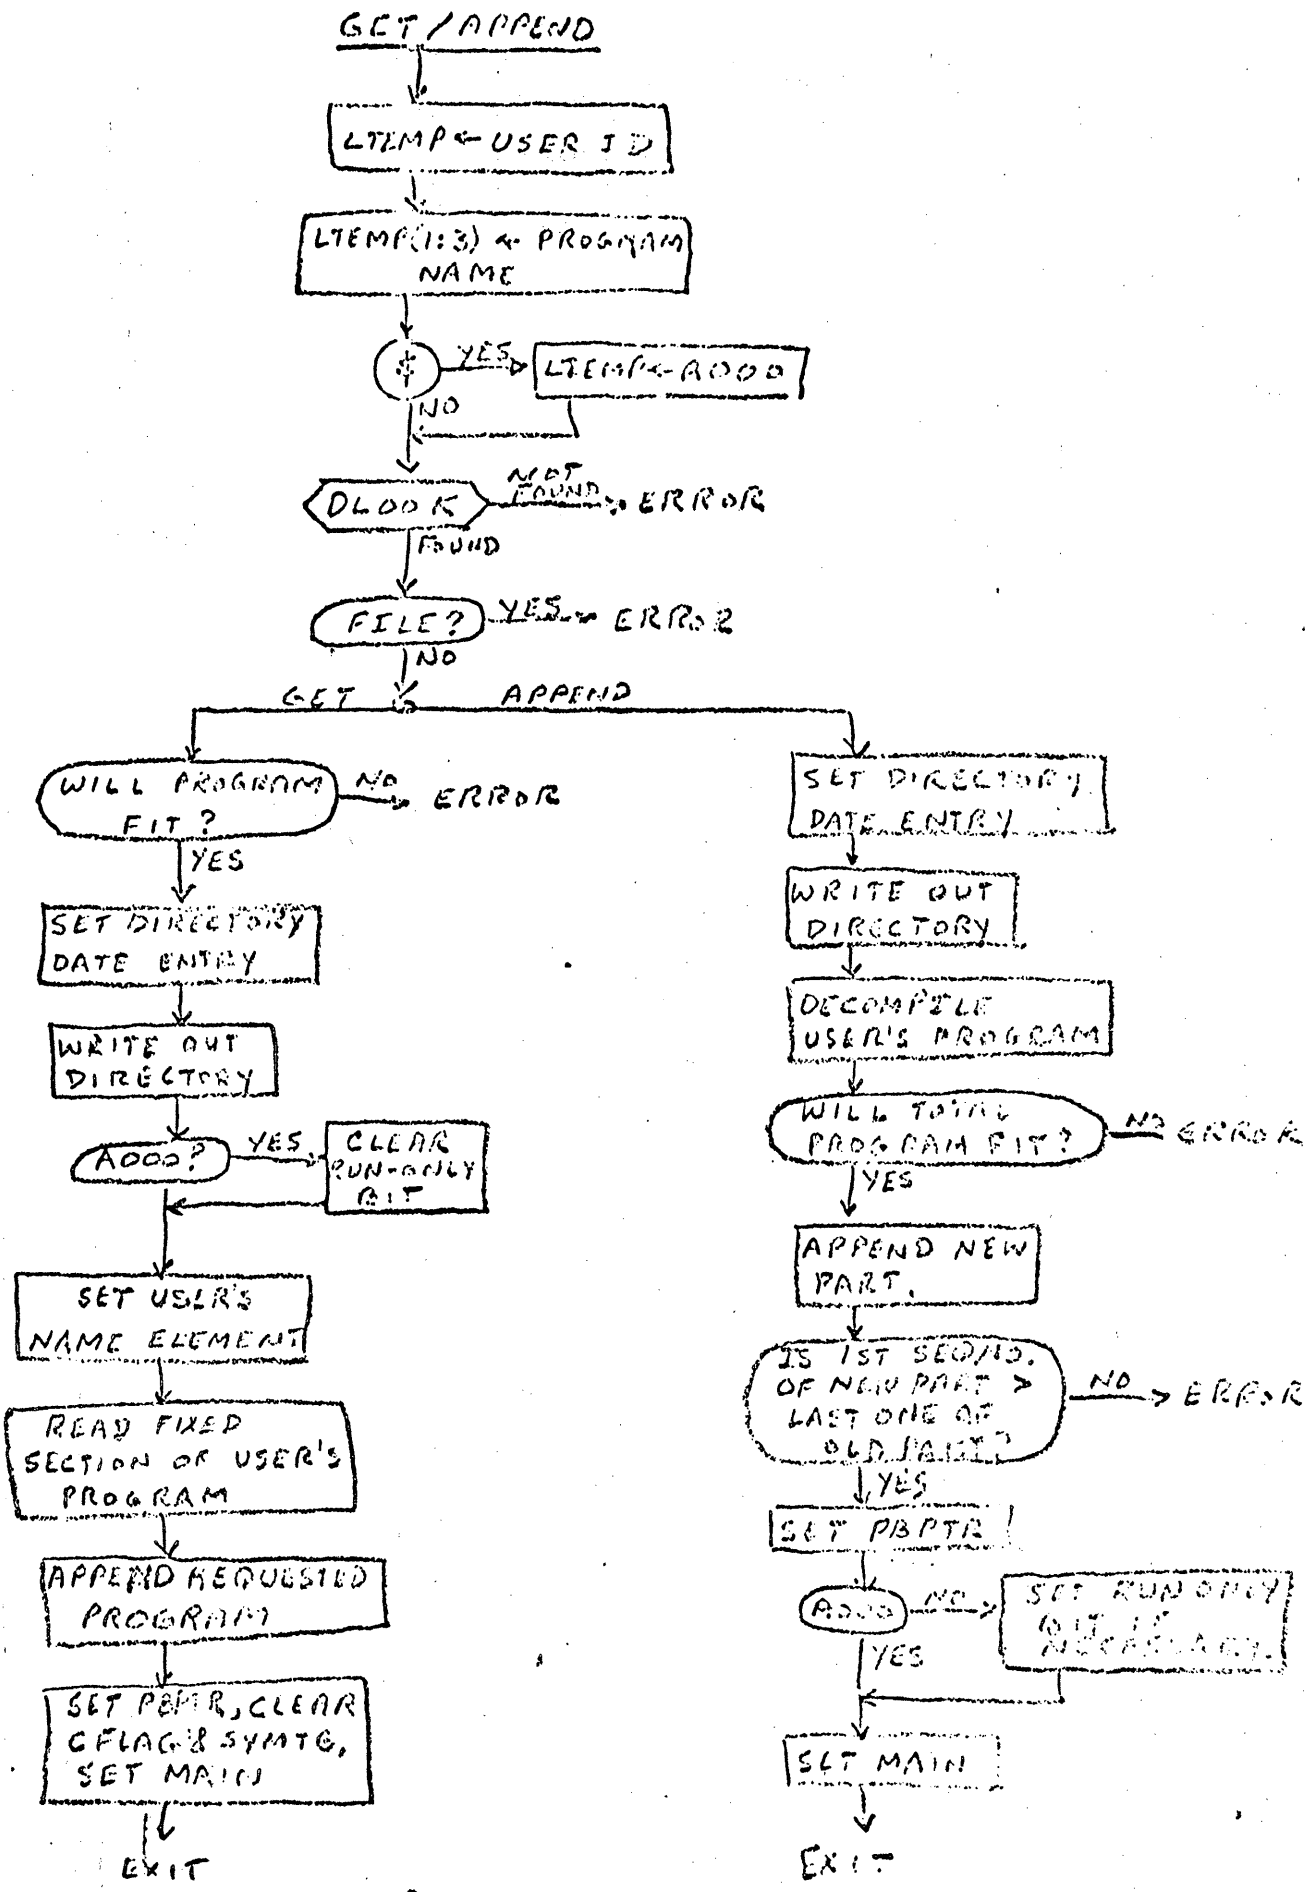 GET/APPEND
LTEMP← USER ID
LTEMP(1:3) ← PROGRAM
NAME
$
YES
LTEMP←A000
NO
DLOOK
NOT
FOUND
ERROR
FOUND
FILE?
YES
ERROR
NO
GET
APPEND
WILL PROGRAM
FIT?
NO
ERROR
YES
SET DIRECTORY
DATE ENTRY
WRITE OUT
DIRECTORY
A000?
YES
CLEAR
RUN-ONLY
BIT
SET USER'S
NAME ELEMENT
READ FIXED
SECTION OF USER'S
PROGRAM
APPEND REQUESTED
PROGRAM
SET PBPTR, CLEAR
CFLAG & SYMTB,
SET MAIN
EXIT
SET DIRECTORY
DATE ENTRY
WRITE OUT
DIRECTORY
DECOMPILE
USER'S PROGRAM
WILL TOTAL
PROGRAM FIT?
NO
ERROR
YES
APPEND NEW
PART.
IS 1ST SEQ/NO.
OF NEW PART >
LAST ONE OF
OLD PART?
NO
ERROR
YES
SET PBPTR
A000
NO
SET RUN ONLY
BIT IF
NECESSARY.
YES
SET MAIN
EXIT